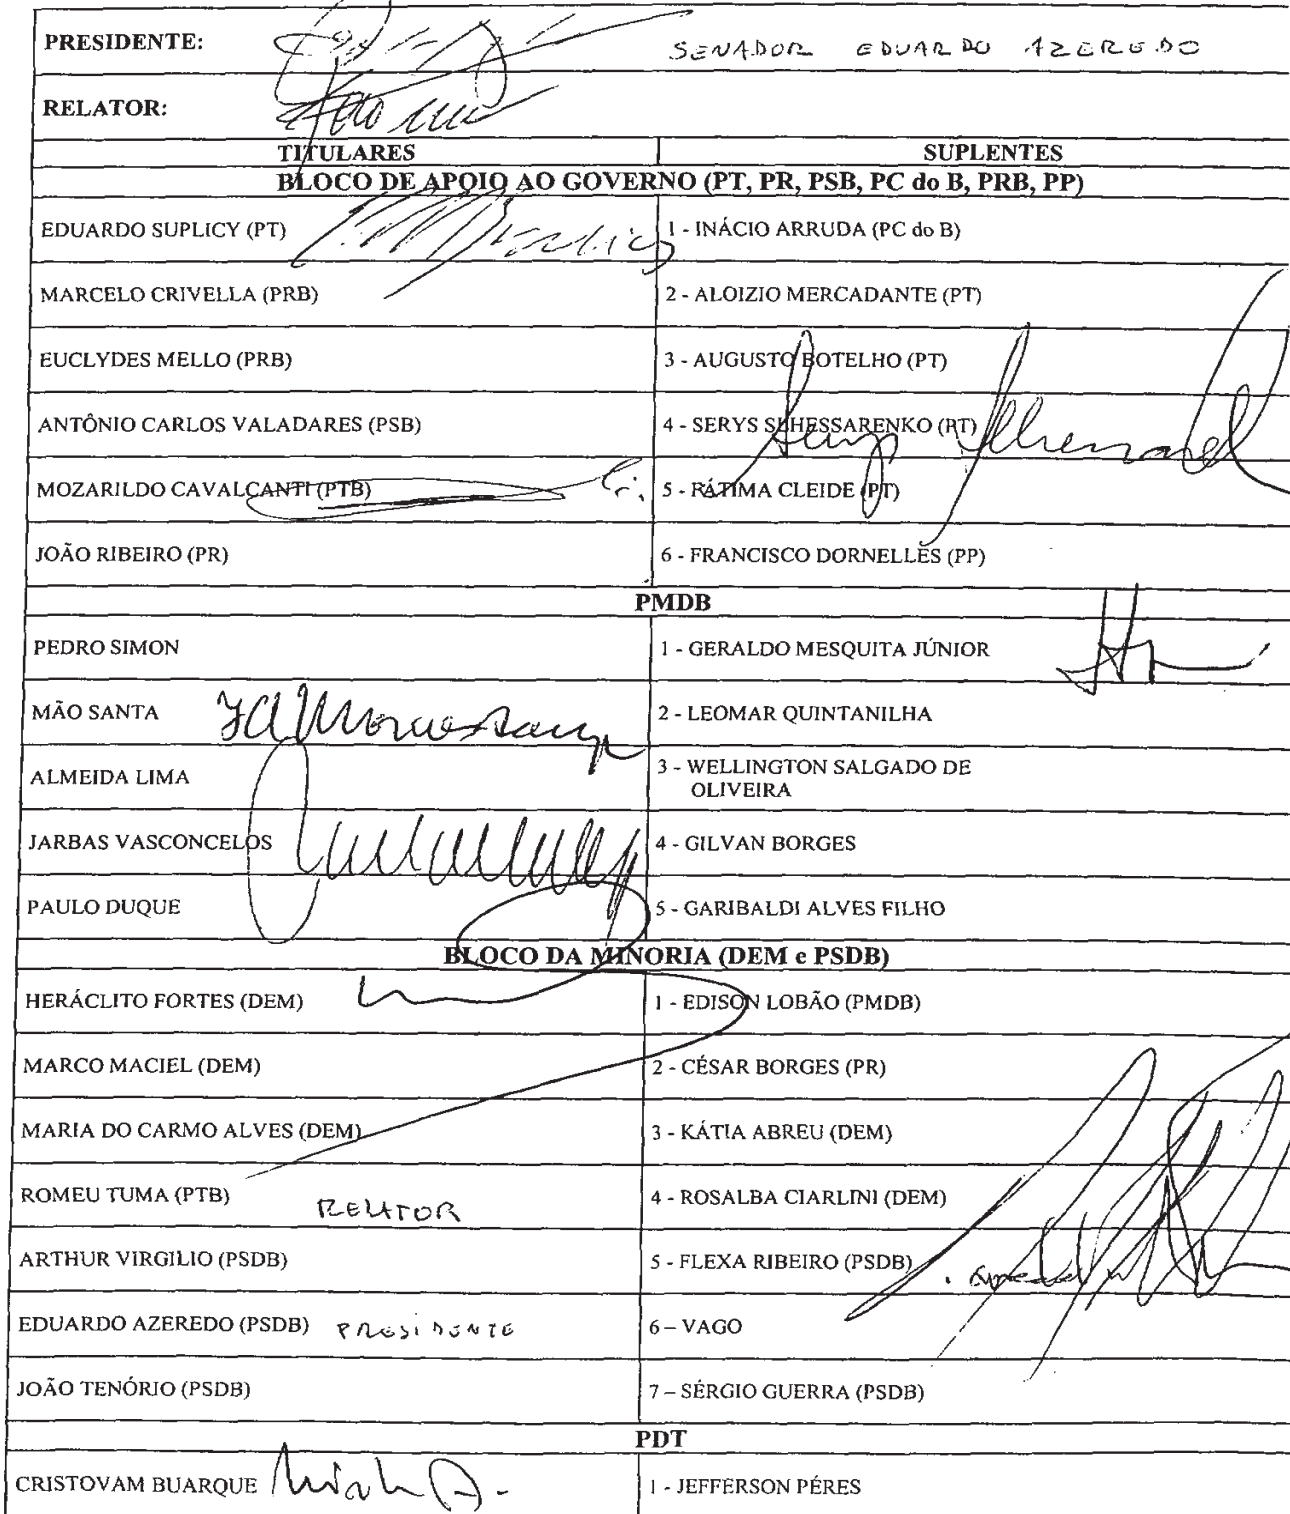 PRESIDENTE: SENADOR EDUARDO AZEREDO
RELATOR:
TITULARES SUPLENTES
BLOCO DE APOIO AO GOVERNO (PT, PR, PSB, PC do B, PRB, PP)
EDUARDO SUPLICY (PT) 1 - INÁCIO ARRUDA (PC do B)
MARCELO CRIVELLA (PRB) 2 - ALOIZIO MERCADANTE (PT)
EUCLYDES MELLO (PRB) 3 - AUGUSTO BOTELHO (PT)
ANTÔNIO CARLOS VALADARES (PSB) 4 - SERYS SLHESSARENKO (PT)
MOZARILDO CAVALCANTI (PTB) 5 - FÁTIMA CLEIDE (PT)
JOÃO RIBEIRO (PR) 6 - FRANCISCO DORNELLES (PP)
PMDB
PEDRO SIMON 1 - GERALDO MESQUITA JÚNIOR
MÃO SANTA 2 - LEOMAR QUINTANILHA
ALMEIDA LIMA 3 - WELLINGTON SALGADO DE
OLIVEIRA
JARBAS VASCONCELOS 4 - GILVAN BORGES
PAULO DUQUE 5 - GARIBALDI ALVES FILHO
BLOCO DA MINORIA (DEM e PSDB)
HERÁCLITO FORTES (DEM) 1 - EDISON LOBÃO (PMDB)
MARCO MACIEL (DEM) 2 - CÉSAR BORGES (PR)
MARIA DO CARMO ALVES (DEM) 3 - KÁTIA ABREU (DEM)
ROMEU TUMA (PTB) RELATOR 4 - ROSALBA CIARLINI (DEM)
ARTHUR VIRGILIO (PSDB) 5 - FLEXA RIBEIRO (PSDB)
EDUARDO AZEREDO (PSDB) PRESIDENTE 6 – VAGO
JOÃO TENÓRIO (PSDB) 7 – SÉRGIO GUERRA (PSDB)
PDT
CRISTOVAM BUARQUE 1 - JEFFERSON PÉRES